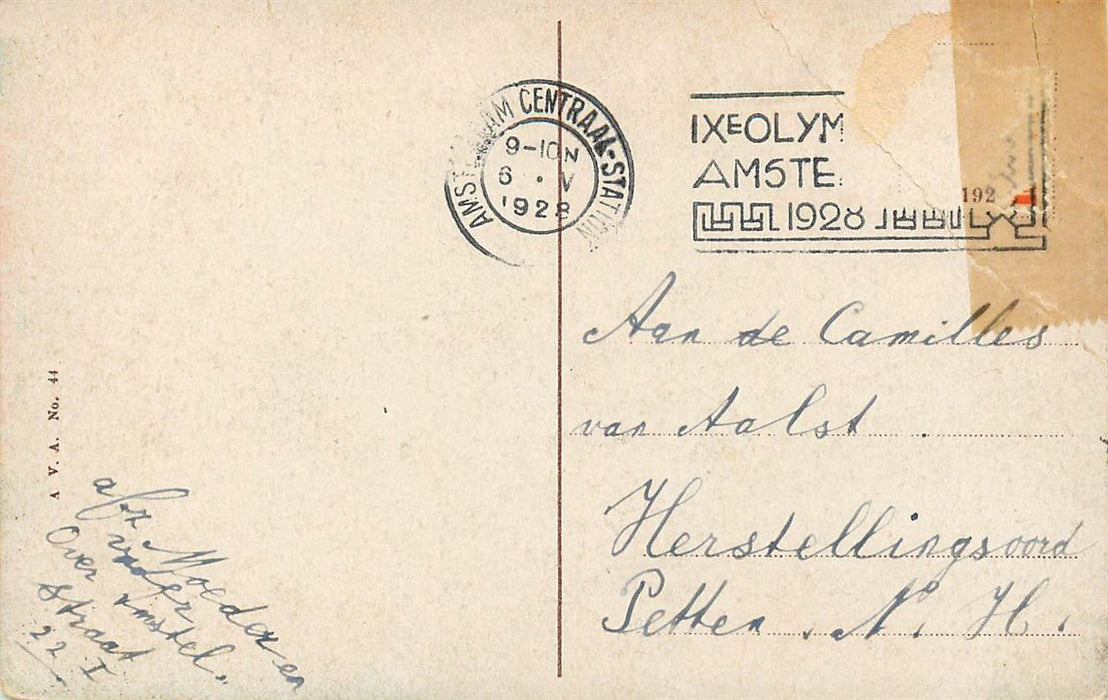 AMSTERDAM CENTRAAL-STATION
9-10N
6 . V
1928
IXE OLYM
AMSTE
1928
192
Aan de Camilles
van Aalst
Herstellingsoord
Petten. N. H.
A V. A. No. 44
afz Moeder en
vader
Over Amstel.
straat
22 I